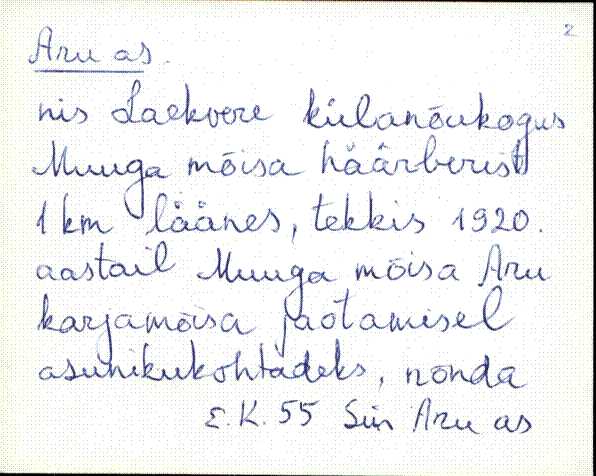 2
Aru as.
nis Laekvere külanõukogus
Muuga mõisa häärberist
1 km läänes, tekkis 1920.
aastail Muuga mõisa Aru
karjamõisa jaotamisel
asunikukohtadeks, nõnda
E.K. 55 Siin Aru as